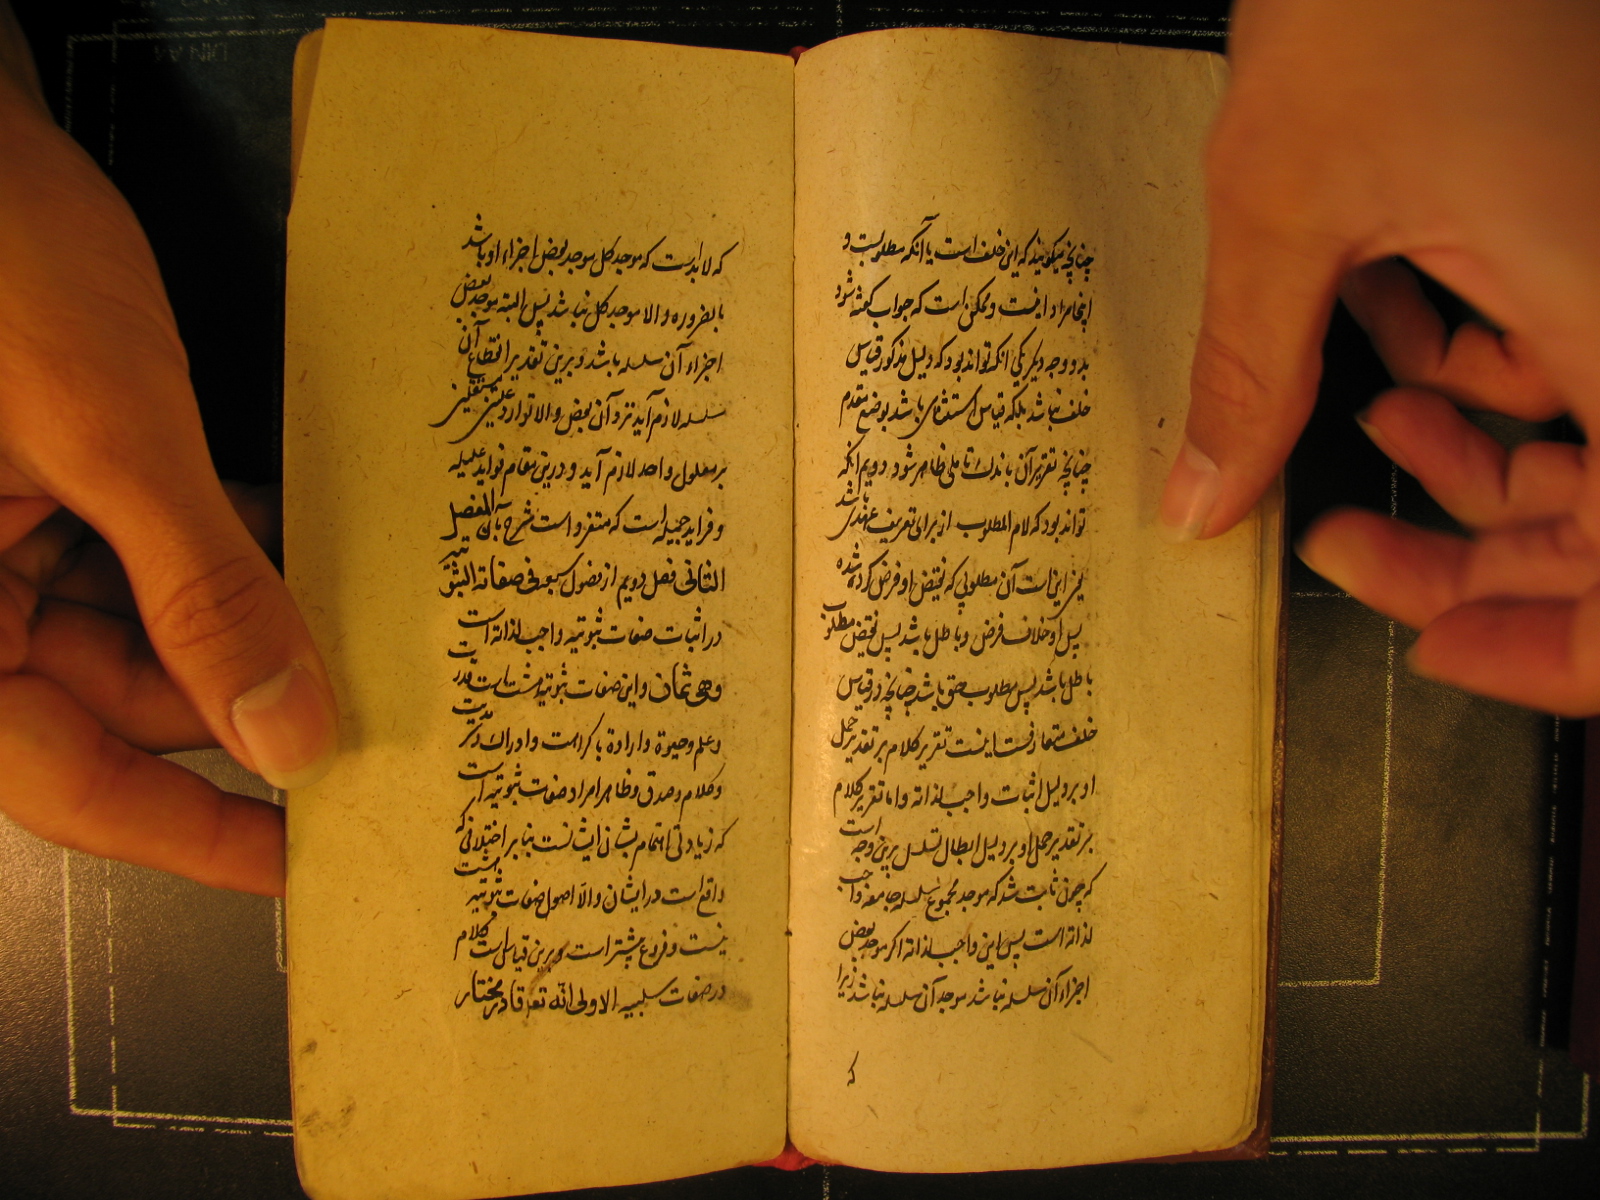 چنانچه میکویند که این خلف است یا آنکه مطلوبست و
اینجا مراد اینست و ممکن است که جواب گفته شود
بدو وجه دیکر یکی انکه تواند بود که دلیل مذکور قیاس
خلف نباشد بلکه قیاس استثنائی باشد بوضع مقدم
چنانچه تقریر آن باندک تاملی ظاهر شود دویم انکه
تواند بود که لام المطلوب از برای تعریف عهدی باشد
یعنی این است آن مطلوبی که نقیض او فرض کرده شده
پس او خلاف فرض و باطل باشد پس نقیض مطلوب
باطل باشد پس مطلوب حق باشد چنانچه در قیاس
خلف متعارفست اینست تقریر کلام بر تقدیر حمل
او بر دلیل اثبات واجب لذاته و اما تقریر کلام
بر تقدیر حمل او بر دلیل ابطال تسلسل برین وجه است
که چون ثابت شد که موجد مجموع سلسله جامعه واجب
لذاته است پس این واجب لذاته اکر موجد بعض
اجزاء آن سلسله نباشد موجد آن سلسله نباشد زیرا
که
که لابد است که موجد کل موجد بعض اجزاء او باشد
بالضروره و الا موجد کل نباشد پس البته موجد بعض
اجزاء آن سلسله باشد و برین تقدیر انقطاع آن
سلسله لازم آید نزد آن بعض و الا توارد علتین مستقلتین
بر معلول واحد لازم آید و درین مقام فواید جلیله
و فراید جمیله است که متفرد است شرح بآن المفصل
الثانی فصل دویم از فصول سبعه فی صفاته الثبوتیه
در اثبات صفات ثبوتیه واجب لذاته است
وهی ثمان و این صفات ثبوتیه هشت است قدرت
و علم و حیوة و ارادة با کراهت و ادراک و سرمدیت
و کلام و صدق و ظاهرا مراد صفات ثبوتیه است
که زیادتی اهتمام بشان ایشانست بنا بر اختلافی که
واقع است در ایشان و الا اصول صفات ثبوتیه هشت
نیست و فروع بیشتر است و برین قیاس است کلام
در صفات سلبیه الاولی انه تع قادر مختار